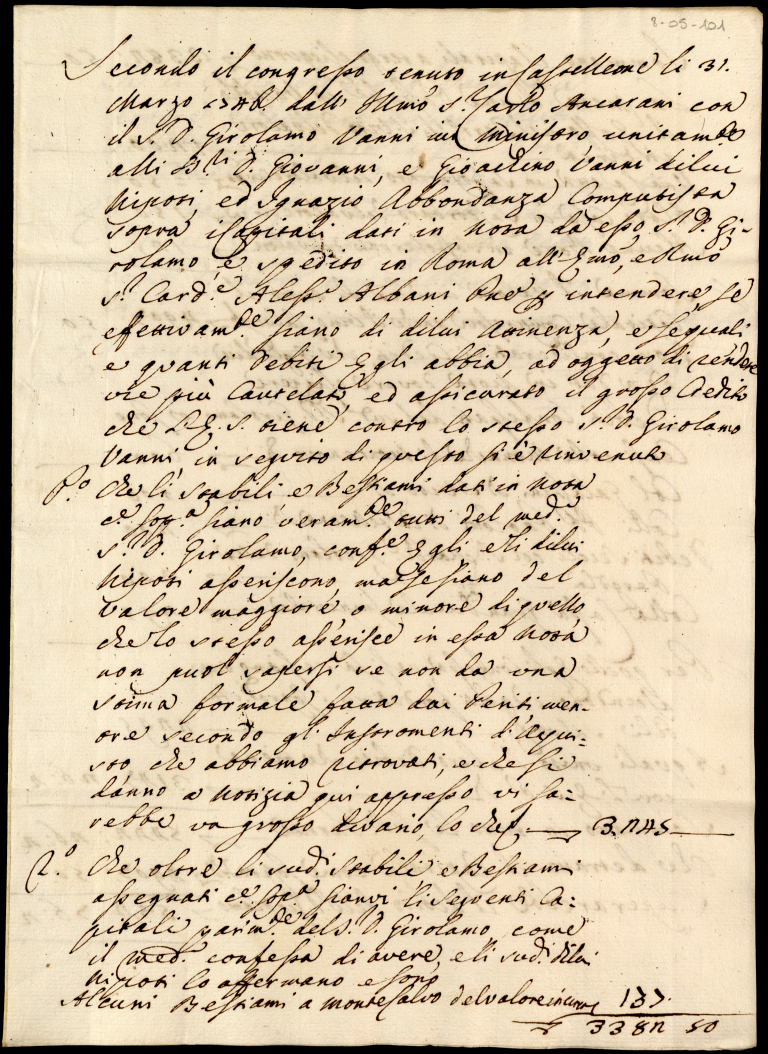 8-05-101
Secondo il congresso tenuto in Castelleone li 31.
Marzo dall' Illmo S.r Carlo Ancarani con
il S. D. Girolamo Vanni iui Ministro unitam.te
alli D. Giovanni, e Gioachino Vanni di lui
Nipoti, ed Ignazio Abbondanza Computista
sopra i Capitali dati in Nota da esso S.r D. Gi-
rolamo e spedito in Roma all' Emo, e Rmo
S.r Card.e Aless.o Albani intendere se
effettivam.te siano di di lui Attinenza, e se quali
e quanti Debiti Egli abbia, ad oggetto di rendere
vie più Cautelato, ed assicurato il grosso Credito
che S. E. S. tiene contro lo stesso S. D. Girolamo
Vanni in seguito di questo si è rinvenuto
P.o Che li Stabili e Bestiami dati in Nota
c.e sop.a siano veram.te tutti del med.o
S. D. Girolamo, conf.e Egli e li di lui
Nipoti asseriscono, ma se siano del
Valore maggiore o minore di quello
che lo stesso asserisce in essa Nota
non puol sapersi se non da una
stima formale fatta dai Periti men-
tre secondo gl' Instromenti d'Acqui-
sto che abbiamo ritrovati, e che si
danno a Notizia qui appresso vi sa-
rebbe un grosso divario, lo che
2.o Che oltre li sud.i Stabili e Bestiami
assegnati c.e sop.a sianvi li seguenti Ca-
pitali parim.te del S. D. Girolamo, come
il med.o confessa di avere, e li sud.i di lui
Nipoti lo affermano e sono
Alcuni Bestiami a Montesalvo del valore in tutto 137.
50